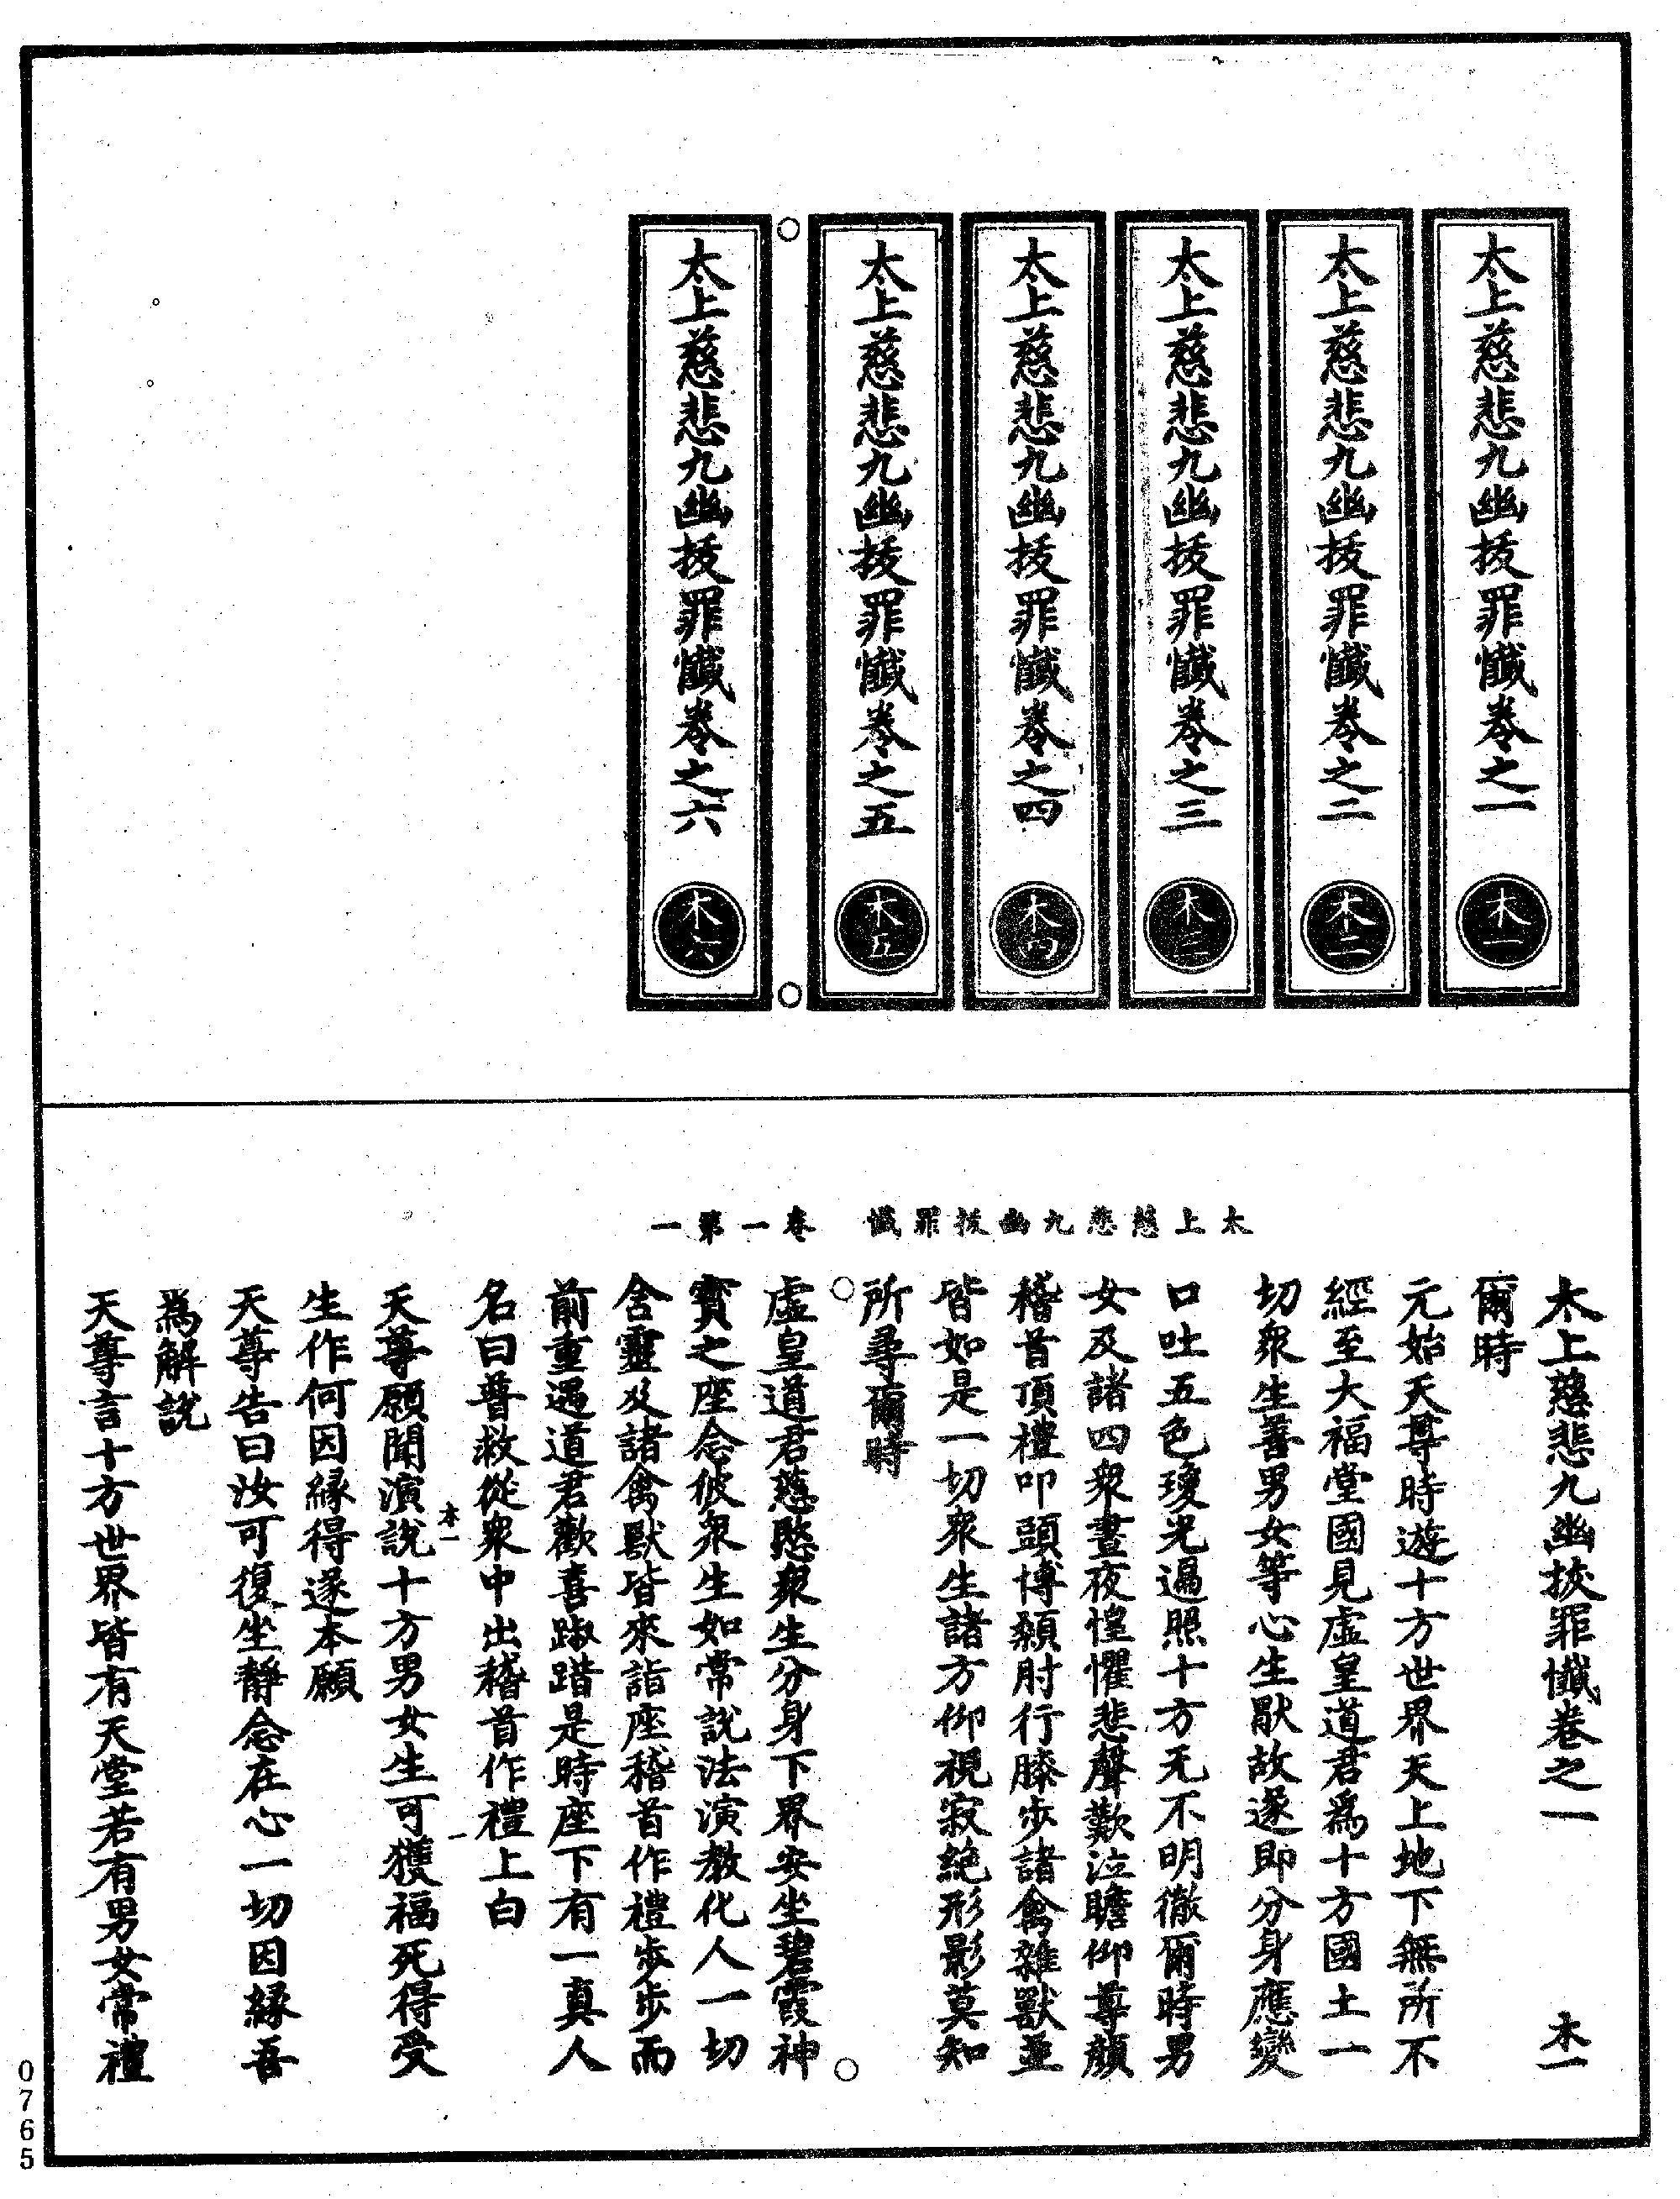 太上慈悲九幽拔罪懺卷之一
木一
太上慈悲九幽拔罪懺卷之二
木二
太上慈悲九幽拔罪懺卷之三
木三
太上慈悲九幽拔罪懺卷之四
木四
太上慈悲九幽拔罪懺卷之五
木五
太上慈悲九幽拔罪懺卷之六
木六
太上慈悲九幽拔罪懺 卷一第一
太上慈悲九幽拔罪懺卷之一 木一
爾時
元始天尊時遊十方世界天上地下無所不
經至大福堂國見虛皇道君為十方國土一
切衆生善男女等心生厭故遂即分身應變
口吐五色瓊光遍照十方无不明徹爾時男
女及諸四衆晝夜惶懼悲聲歎泣瞻仰尊顏
稽首頂禮叩頭博頰肘行膝步諸禽雜獸並
皆如是一切衆生諸方仰視寂絶形影莫知
所尋爾時
虛皇道君慈愍衆生分身下界安坐碧霞神
寶之座念彼衆生如常說法演教化人一切
含靈及諸禽獸皆來詣座稽首作禮步步而
前重遇道君歡喜踧踖是時座下有一真人
名曰普救從衆中出稽首作禮上白
木一 一
天尊願聞演說十方男女生可獲福死得受
生作何因緣得遂本願
天尊告曰汝可復坐靜念在心一切因緣吾
為解說
天尊言十方世界皆有天堂若有男女常禮
0765